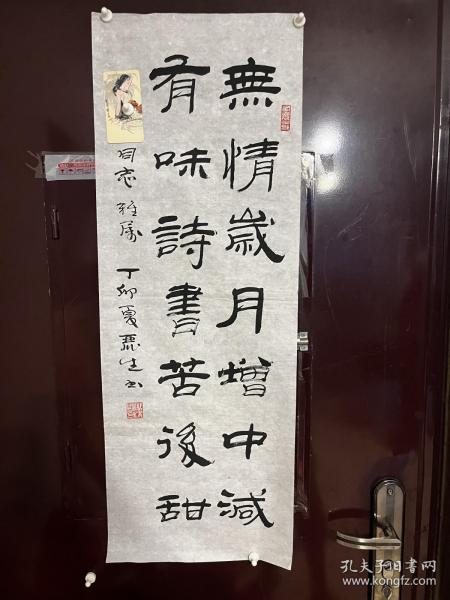 無情歲月增中減
有味詩書苦後甜
同志雅屬
丁卯夏
生書
孔夫子旧书网
www.kongfz.com